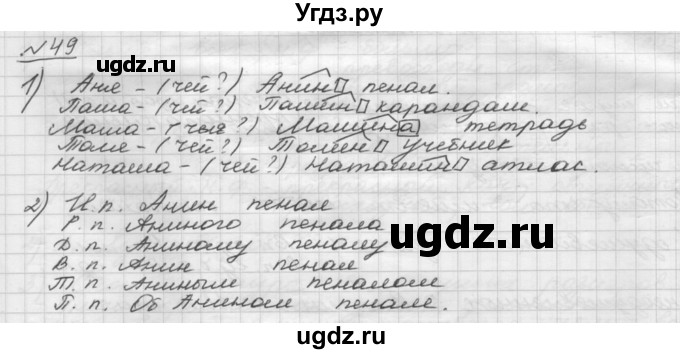 Угдз.ру
№49
1) Аня - (чей?) Анин пенал.
Паша - (чей?) Пашин карандаш.
Маша - (чья?) Машина тетрадь
Толя - (чей?) Толин учебник
Наташа - (чей?) Наташин атлас.
2) И.п. Анин пенал
Р.п. Аниного пенала
Д.п. Аниному пеналу
В.п. Анин пенал
Т.п. Аниным пеналом
П.п. Об Анином пенале.
ugdz.ru
ugdz.ru
ugdz.ru
ugdz.ru